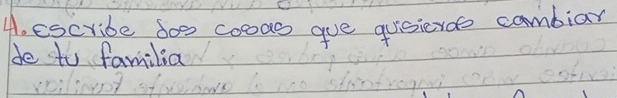 4. escribe dos cosas que quisieras cambiar
de tu familia